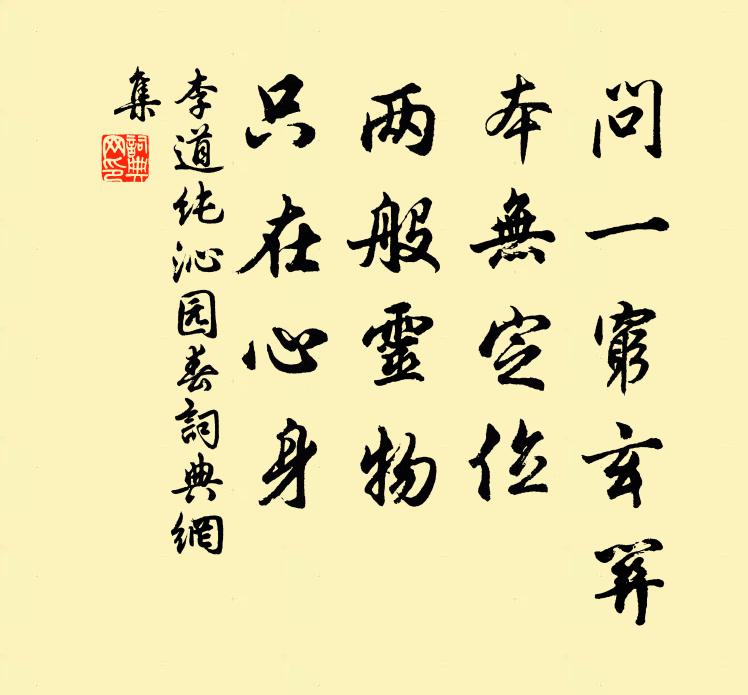 問一窮玄關
本無定位
两般靈物
只在心身
李道纯沁园春詞典網
集
詞典網印